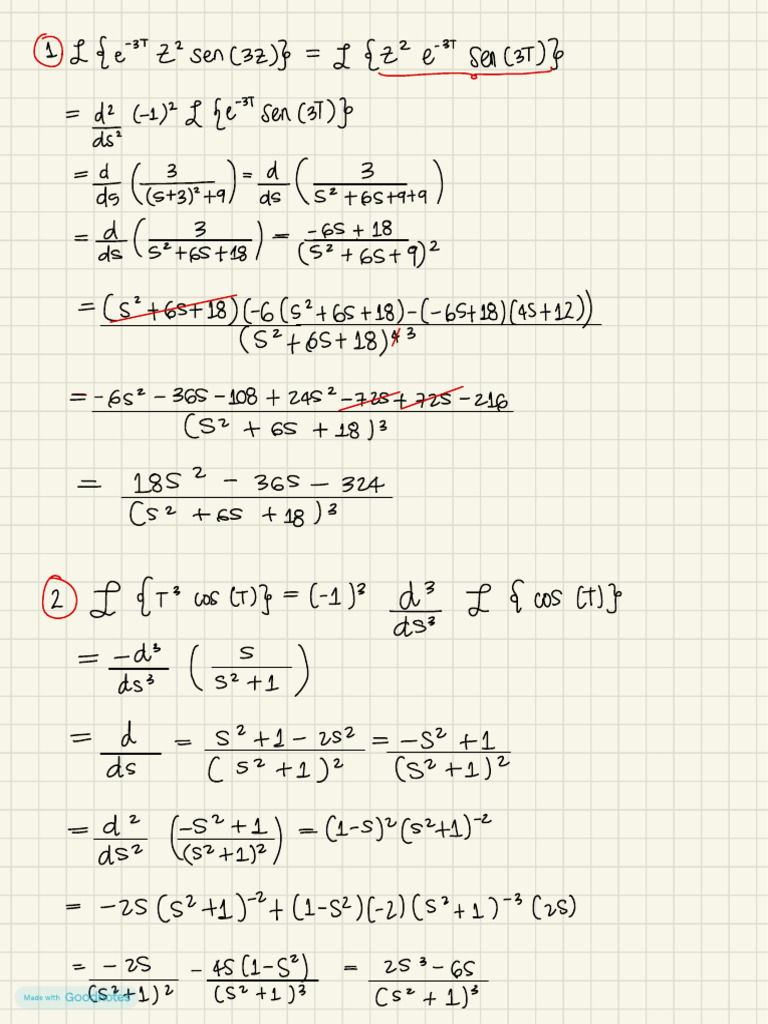 ① ℒ {e^-3T z² sen (3z)} = ℒ {z² e^-3T sen (3T)}
= d²/ds² (-1)² ℒ {e^-3T sen (3T)}
= d/ds (3/((s+3)²+9)) = d/ds (3/(s²+6s+9+9))
= d/ds (3/(s²+6s+18)) = (-6s+18)/(s²+6s+9)²
= (s²+6s+18)(-6(s²+6s+18)-(-6s+18)(4s+12))/(s²+6s+18)^4 3
= (-6s² - 36s - 108 + 24s² - 72s + 72s - 216)/(s² + 6s + 18)³
= (18s² - 36s - 324)/(s² + 6s + 18)³
② ℒ {T³ cos (T)} = (-1)³ d³/ds³ ℒ { cos (T)}
= -d³/ds³ (s/(s²+1))
= d/ds = (s²+1-2s²)/(s²+1)² = (-s²+1)/(s²+1)²
= d²/ds² ((-s²+1)/(s²+1)²) = (1-s)²(s²+1)^-2
= -2s(s²+1)^-2 + (1-s²)(-2)(s²+1)^-3 (2s)
= -2s/(s²+1)² - 4s(1-s²)/(s²+1)³ = (2s³-6s)/(s²+1)³
Made with Goodnotes